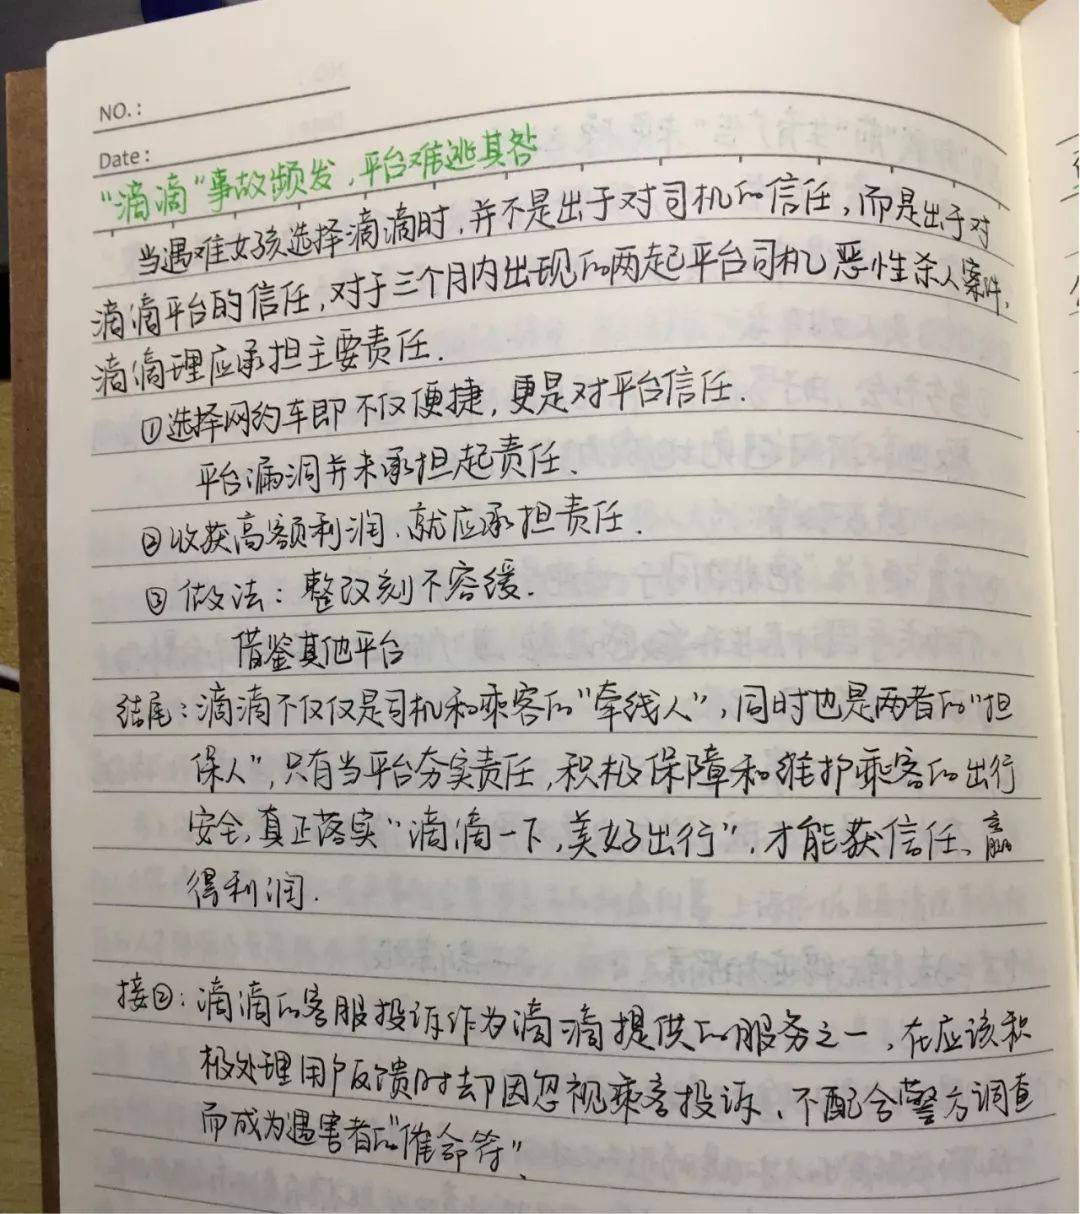 NO.:
Date:
"滴滴"事故频发,平台难逃其咎
当遇难女孩选择滴滴时,并不是出于对司机的信任,而是出于对
滴滴平台的信任,对于三个月内出现的两起平台司机恶性杀人案件,
滴滴理应承担主要责任.
①选择网约车即不仅便捷,更是对平台信任.
平台漏洞并未承担起责任.
②收获高额利润、就应承担责任.
③做法:整改刻不容缓.
借鉴其他平台
结尾:滴滴不仅仅是司机和乘客的"牵线人",同时也是两者的"担
保人",只有当平台夯实责任,积极保障和维护乘客的出行
安全,真正落实"滴滴一下,美好出行",才能获信任、赢
得利润.
接②:滴滴的客服投诉作为滴滴提供的服务之一,在应该积
极处理用户反馈时却因忽视乘客投诉、不配合警方调查
而成为遇害者的"催命符".